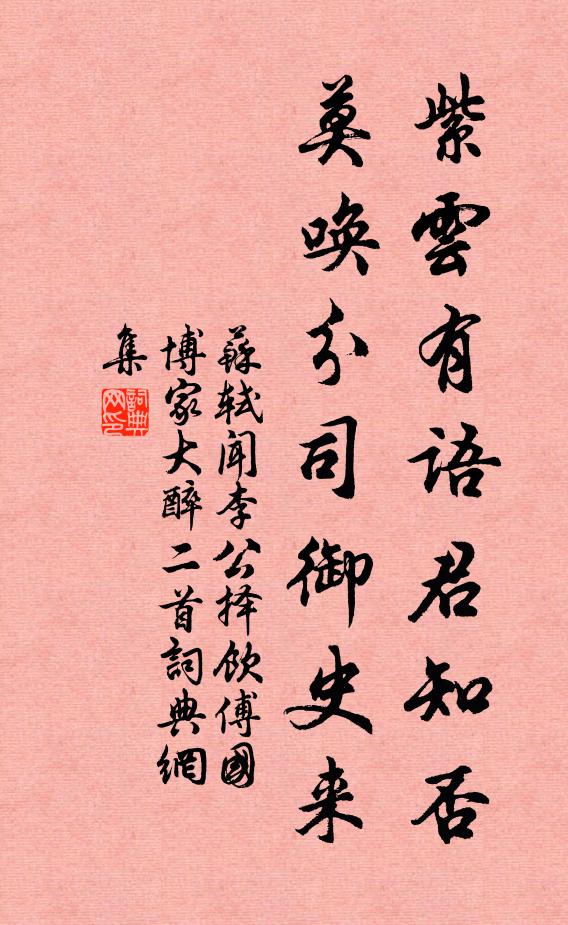 紫雲有語君知否
莫唤分司御史来
蘇軾闻李公择飲傅國
博家大醉二首詞典網
集
詞典網印